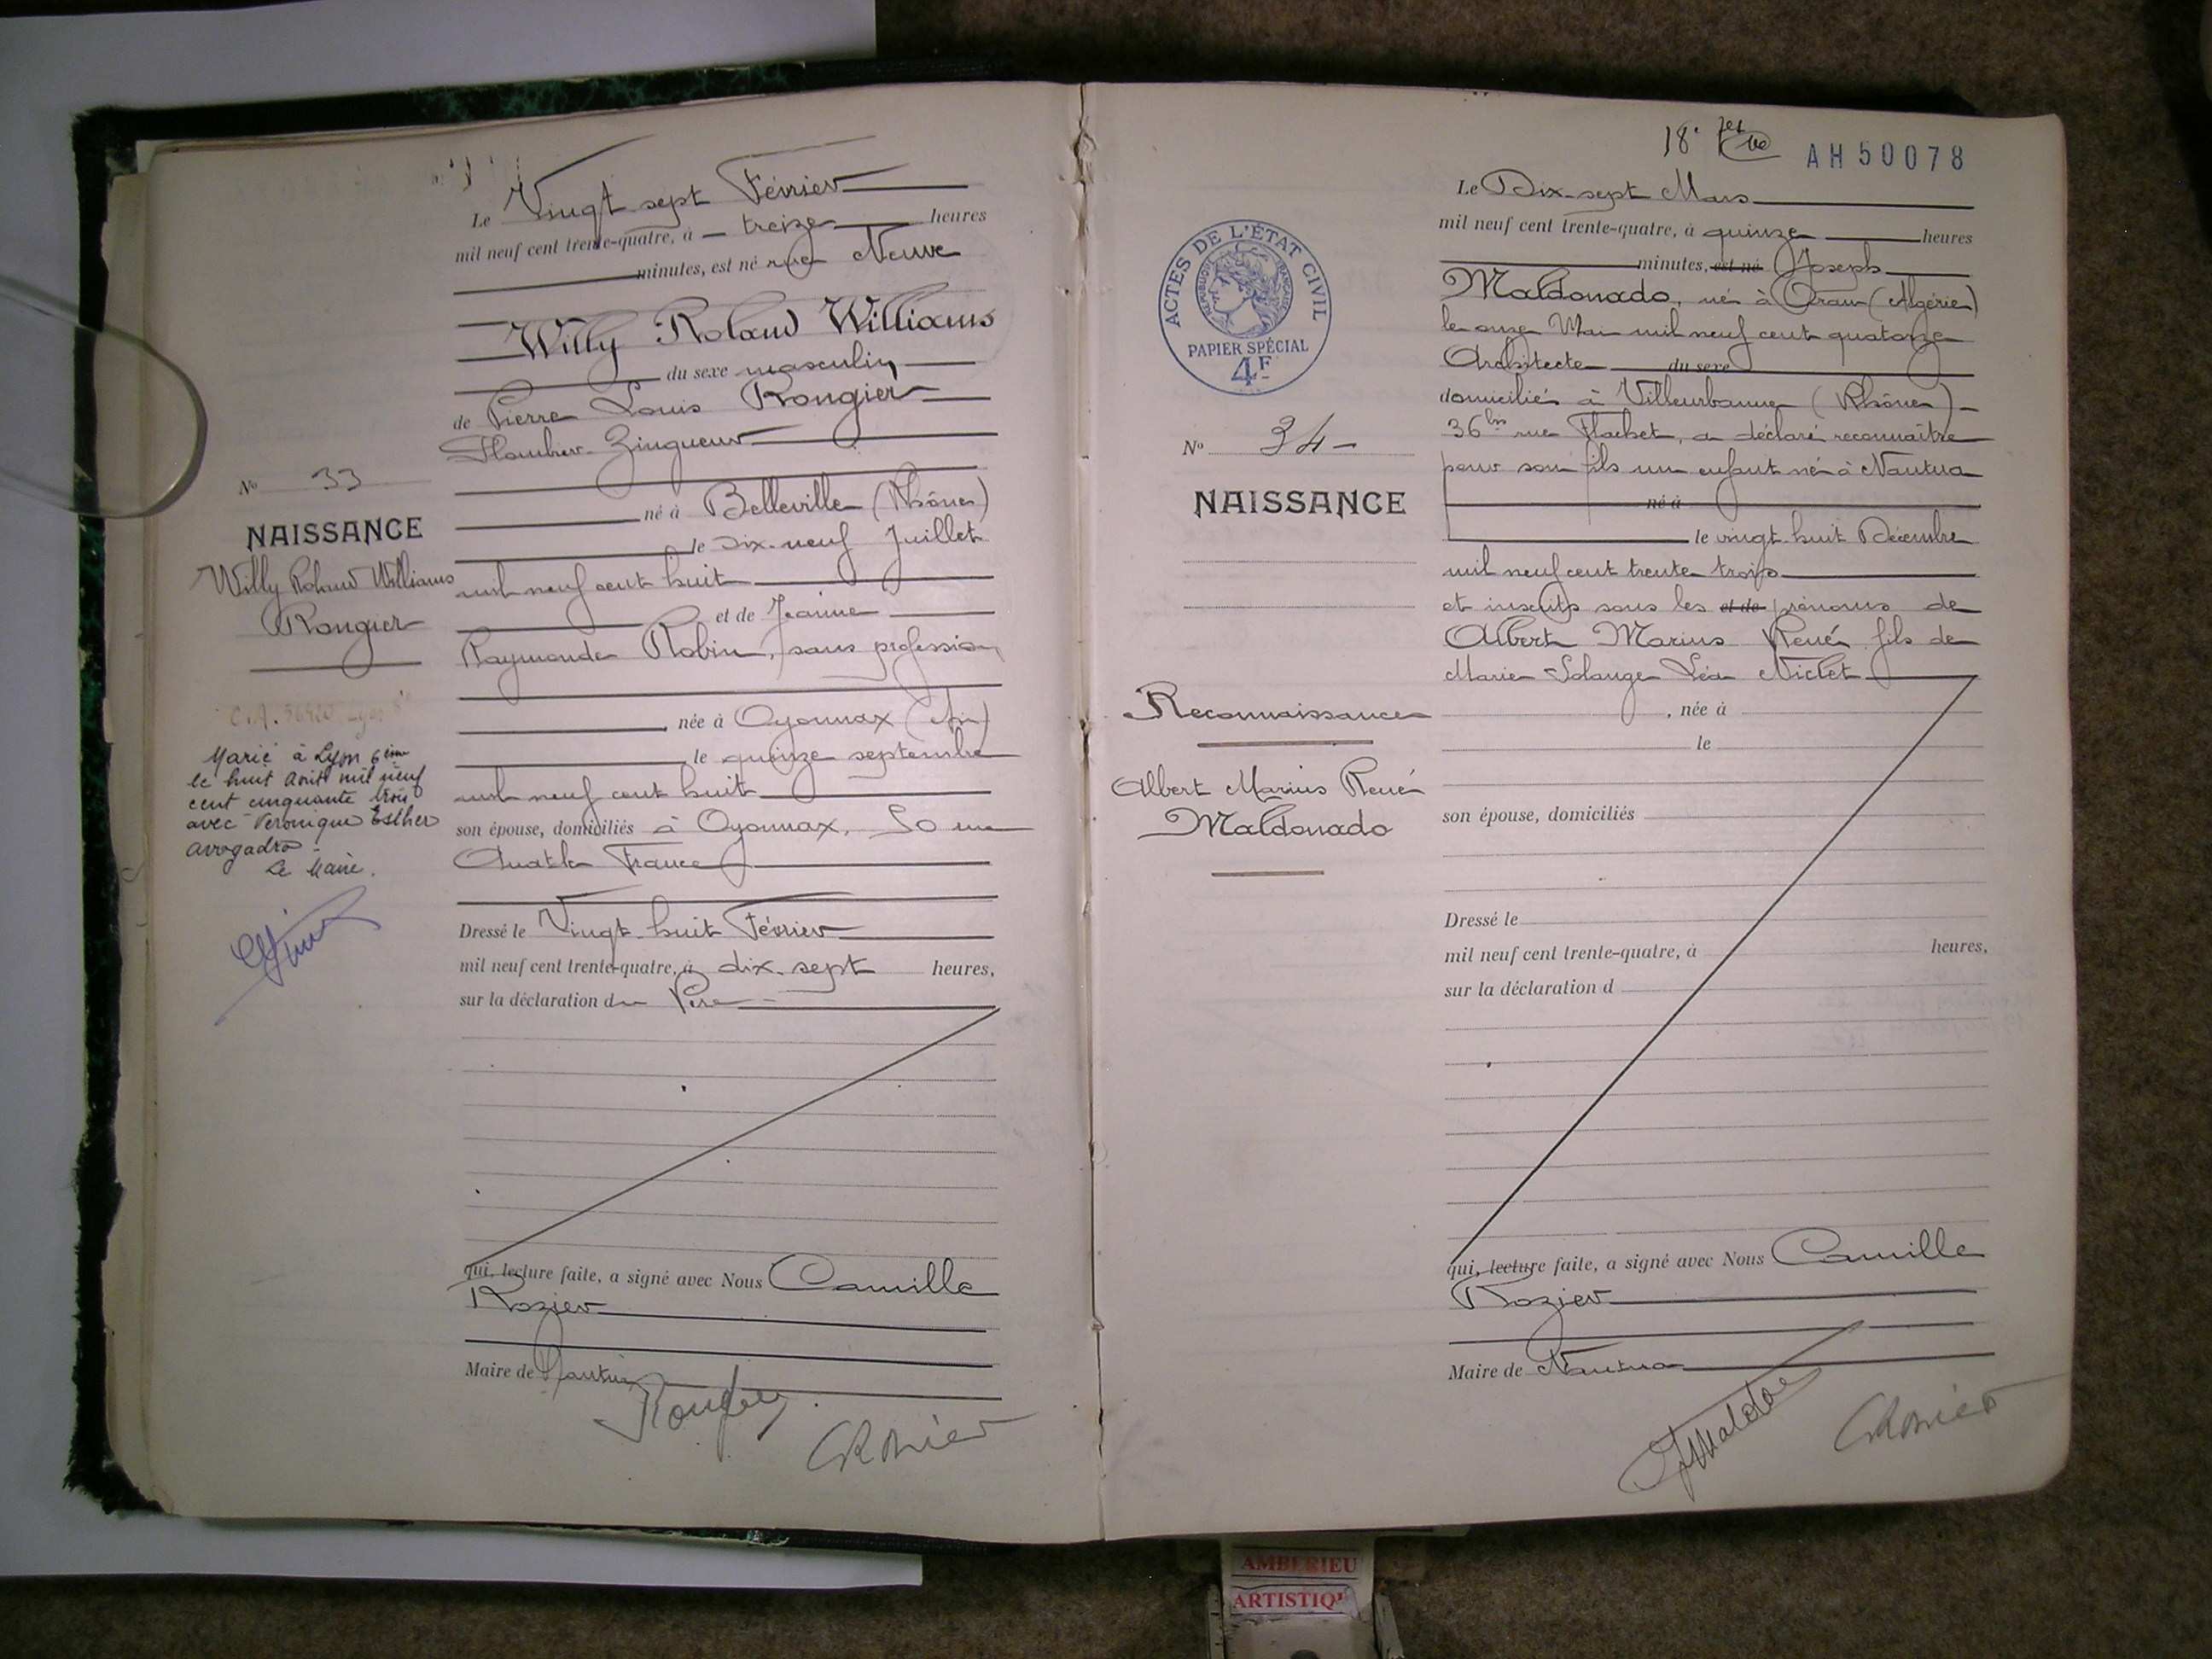 Le Vingt sept Février
mil neuf cent trente-quatre, à treize heures
minutes, est né rue Neuve
Willy Roland Williams
du sexe masculin
de Pierre Louis Rongier
Plombier-Zingueur
né à Belleville (Rhône)
le Dix-neuf Juillet
mil neuf cent huit
et de Jeanne
Raymonde Robin, sans profession
, née à Oyonnax (Ain)
le quinze septembre
mil neuf cent huit
son épouse, domiciliés à Oyonnax, 50 rue
Anatole France
Dressé le Vingt-huit Février
mil neuf cent trente-quatre, à dix-sept heures,
sur la déclaration du Père
qui, lecture faite, a signé avec Nous Camille
Rozier
Maire de Nantua
No 33
NAISSANCE
Willy Roland Williams
Rongier
Marié à Lyon 6ème
le huit Août mil neuf
cent cinquante trois
avec Veronique Esther
Avogadro
Le Maire.
18e
AH50078
ACTES DE L'ÉTAT CIVIL
RÉPUBLIQUE FRANÇAISE
PAPIER SPÉCIAL
4F
No 34
NAISSANCE
Reconnaissance
Albert Marius René
Maldonado
Le Dix-sept Mars
mil neuf cent trente-quatre, à quinze heures
minutes, est né Joseph
Maldonado, né à Oran (Algérie)
le onze Mai mil neuf cent quatorze
Architecte du sexe
domicilié à Villeurbanne (Rhône)
36 bis rue Flachet, a déclaré reconnaître
pour son fils un enfant né à Nantua
né à
le vingt huit Décembre
mil neuf cent trente trois
et inscrits sous les et de prénoms de
Albert Marius René fils de
Marie Solange Léa Niclet
, née à
le
son épouse, domiciliés
Dressé le
mil neuf cent trente-quatre, à heures,
sur la déclaration d
qui, lecture faite, a signé avec Nous Camille
Rozier
Maire de Nantua
AMBERIEU
ARTISTIQ